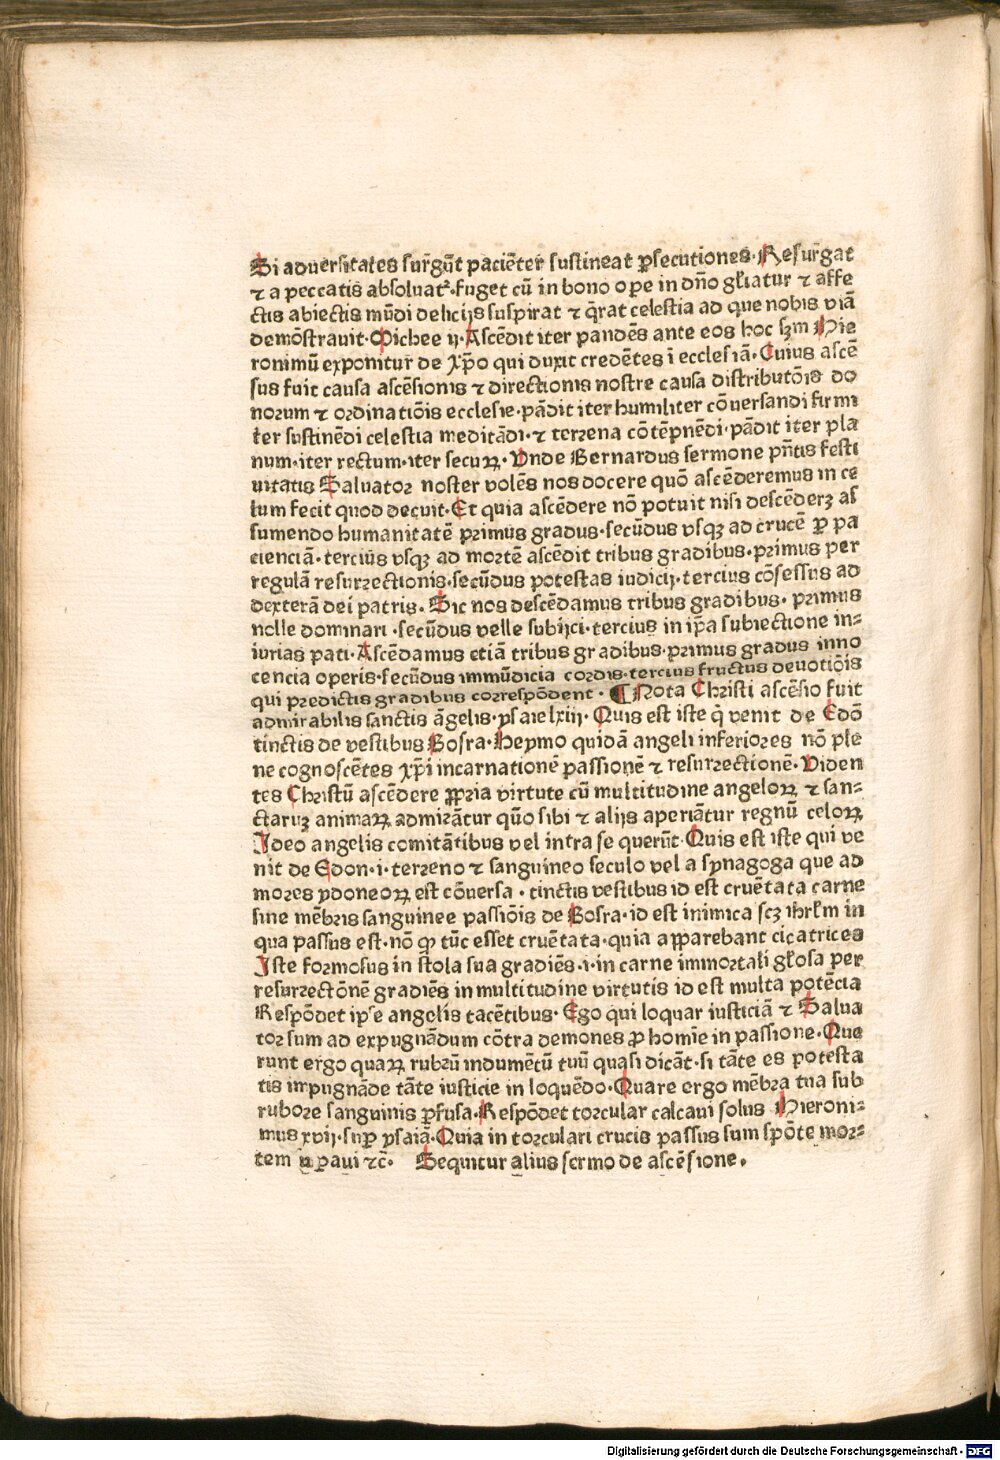 Si aduersitates surgūt paciēter sustineat ꝑsecutiones· Resurgat
⁊ a peccatis absoluatᷣ·fuget cū in bono oꝑe in dn̄o gl̄iatur ⁊ affe
ctis abiectis mūdi delicijs suspirat ⁊ q̄rat celestia ad que nobis viā
demōstrauit·Michee ij·Ascēdit iter pandēs ante eos hoc sꝫm Hie
ronimū exponitur de xp̄o qui duxit credētes ī ecclesiā· Cuius ascē
sus fuit causa ascēsionis ⁊ directionis nostre causa distributōis do
norum ⁊ ordinatiōis ecclesie·pādit iter humiliter cōuersandi firmi
ter sustinēdi celestia meditādi·⁊ terrena cōtēpnēdi·pādit iter pla
num·iter rectum·iter secuꝝ· Vnde Bernardus sermone pn̄tis festi
uitatis Saluator noster volēs nos docere quō ascēderemus in ce
lum fecit quod decuit·Et quia ascēdere nō potuit nisi descēderꝫ as
sumendo humanitatē primus gradus·secūdus vsqꝫ ad crucē ꝑ pa
cienciā·tercius vsqꝫ ad mortē ascēdit tribus gradibus·primus per
regulā resurrectionis·secūdus potestas iudicij·tercius cōsessus ad
dexterā dei patris· Sic nos descēdamus tribus gradibus· primus
nolle dominari ·secūdus velle subijci·tercius in ip̄a subiectione in⸗
iurias pati·Ascēdamus etiā tribus gradibus·primus gradus inno
cencia operis·secūdus immūdicia cordis·tercius fructus deuotiōis
qui predictis gradibus correspōdent · ¶ Nota Christi ascēsio fuit
admirabilis sanctis āgelis·ysaie lxiij· Quis est iste q̄ venit de Edō
tinctis de vestibus Bosra·Heymo quidā angeli inferiores nō ple
ne cognoscētes xp̄i incarnationē passionē ⁊ resurrectionē· Viden
tes Christū ascēdere ꝓpria virtute cū multitudine angeloꝝ ⁊ san⸗
ctarūꝫ animaꝝ admirātur quō sibi ⁊ alijs aperiātur regnū celoꝝ
Ideo angelis comitātibus vel intra se querūt· Quis est iste qui ve
nit de Edon·i·terreno ⁊ sanguineo seculo vel a synagoga que ad
mores ydoneoꝝ est cōuersa · tinctis vestibus id est cruētata carne
sine mēbris sanguinee passiōis de Bosra·id est inimica scꝫ ihrl̄m in
qua passus est·nō ꝙ tūc esset cruētata·quia apparebant cicatrices
Iste formosus in stola sua gradiēs·i·in carne immortali glosa per
resurrectōnē gradiēs in multitudine virtutis id est multa potēcia
Respōdet ip̄e angelis tacētibus· Ego qui loquar iusticiā ⁊ Salua
tor sum ad expugnādum cōtra demones ꝓ homīe in passione·Que
runt ergo quaꝝ rubrū indumētū tuū quasi dicāt·si tāte es potesta
tis impugnāde tāte iusticie in loquēdo·Quare ergo mēbra tua sub
rubore sanguinis ꝑfusa·Respōdet torcular calcaui solus Hieroni⸗
mus xvij·suꝑ ysaiā·Quia in torculari crucis passus sum spōte mor⸗
tem paui ⁊c̄· Sequitur alius sermo de ascēsione·
Digitalisierung gefördert durch die Deutsche Forschungsgemeinschaft · DFG